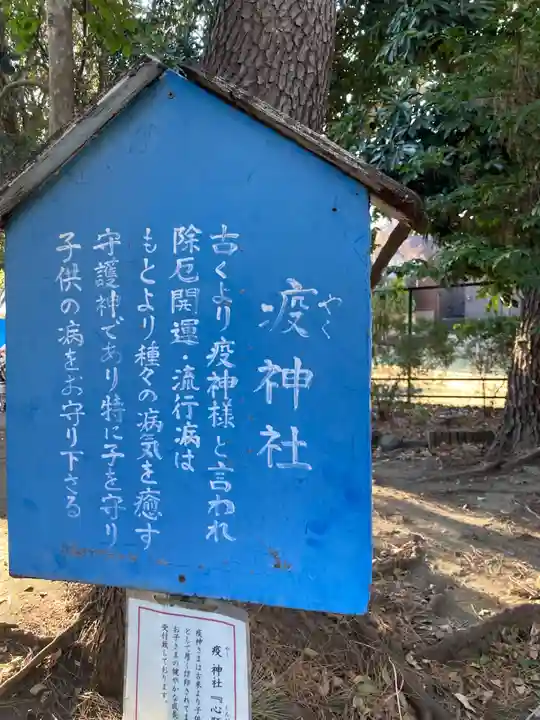 疫神社
やく
古くより疫神様と言われ
除厄開運・流行病は
もとより種々の病気を癒す
守護神であり特に子を守り
子供の病をお守り下さる
疫神社『心願
やー
疫神さまは古来より子供
として厚く訪仰されてま
お子さまの健やかな成長
受付致しております。